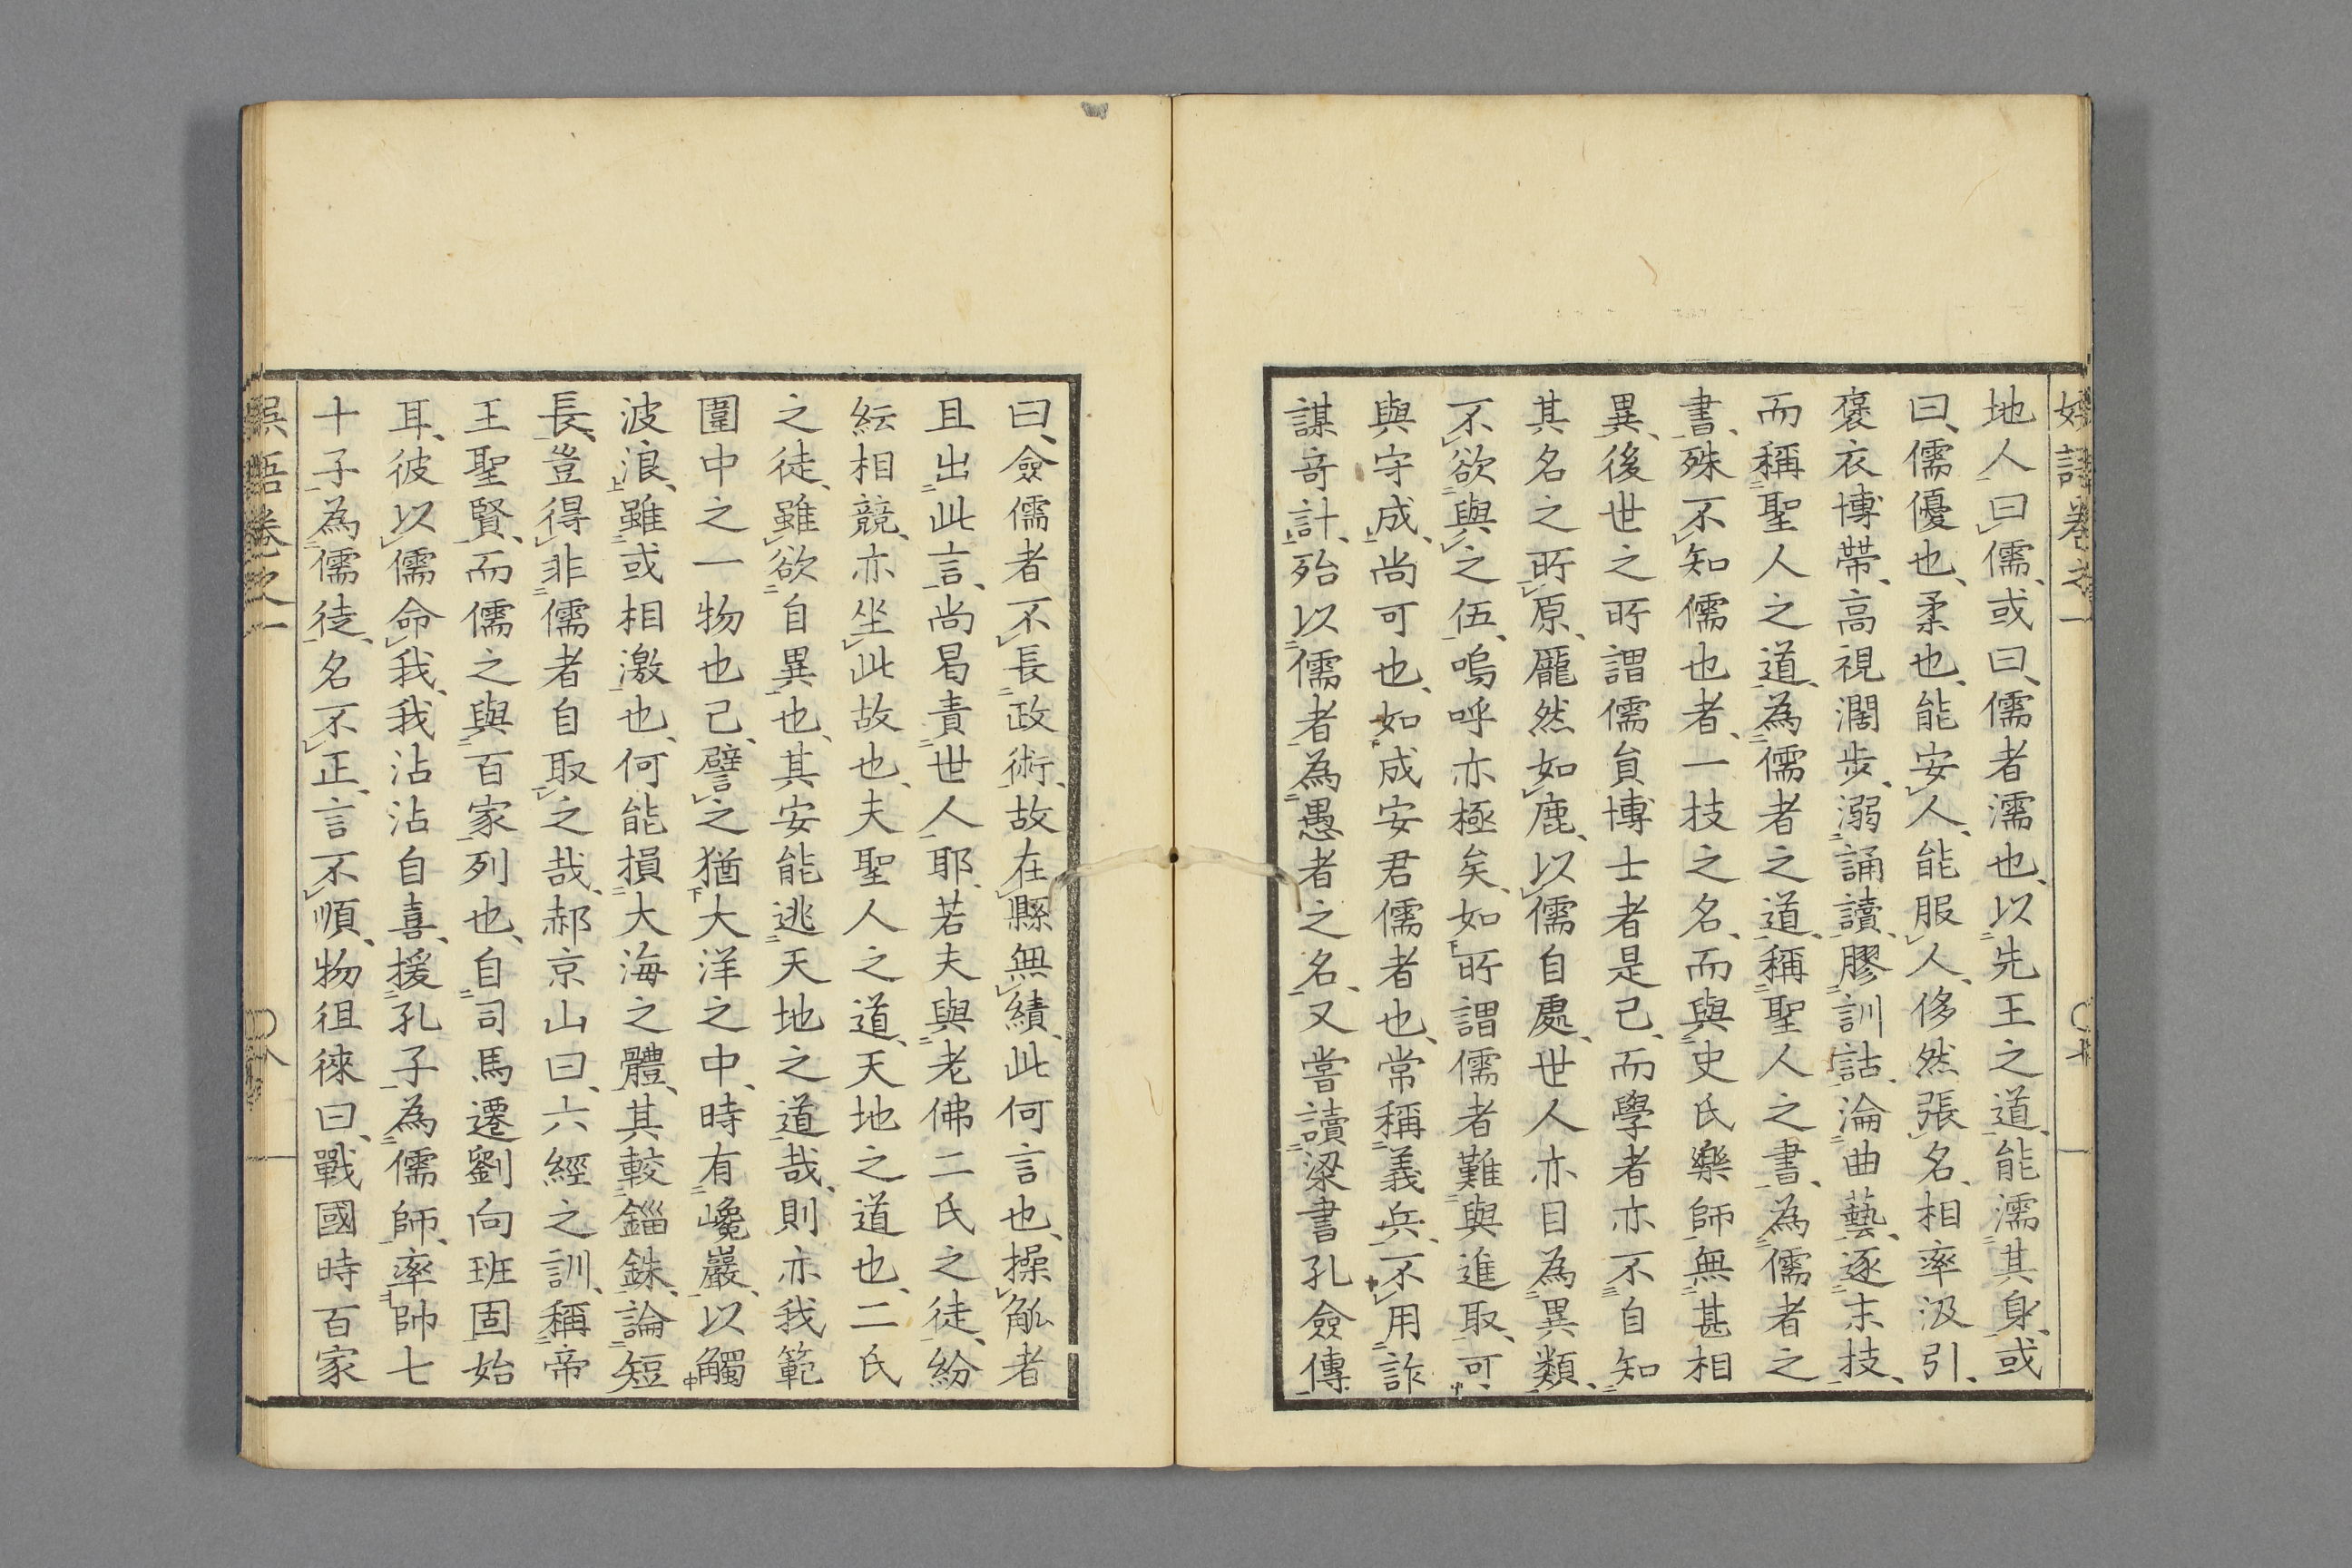 地人曰儒、或曰、儒者濡也、以先王之道、能濡其身、或
曰、儒優也、柔也、能安人、能服人、侈然張名、相率汲引、
褒衣博帶、高視濶步、溺誦讀、膠訓詁、淪曲藝、逐末技、
而稱聖人之道、為儒者之道、稱聖人之書、為儒者之
書、殊不知儒也者、一技之名、而與史氏樂師無甚相
異、後世之所謂儒負博士者是已、而學者亦不自知
其名之所原、龐然如鹿、以儒自處、世人亦目為異類、
不欲與之伍、嗚呼亦極矣、如所謂儒者難與進取、可
與守成、尚可也、如成安君儒者也、常稱義兵、不用詐
謀奇計、殆以儒者為愚者之名、又嘗讀梁書孔僉傳
曰、僉儒者不長政術、故在縣無績、此何言也、操觚者
且出此言、尚曷責世人耶、若夫與老佛二氏之徒、紛
紜相競、亦坐此故也、夫聖人之道、天地之道也、二氏
之徒、雖欲自異也、其安能逃天地之道哉、則亦我範
圍中之一物也已、譬之猶大洋之中、時有巉巖、以觸
波浪、雖或相激也、何能損大海之體、其較錙銖、論短
長、豈得非儒者自取之哉、郝京山曰、六經之訓、稱帝
王聖賢、而儒之與百家列也、自司馬遷劉向班固始
耳、彼以儒命我、我沾沾自喜、援孔子為儒師、率帥七
十子為儒徒、名不正、言不順、物徂徠曰、戰國時百家
卷之一